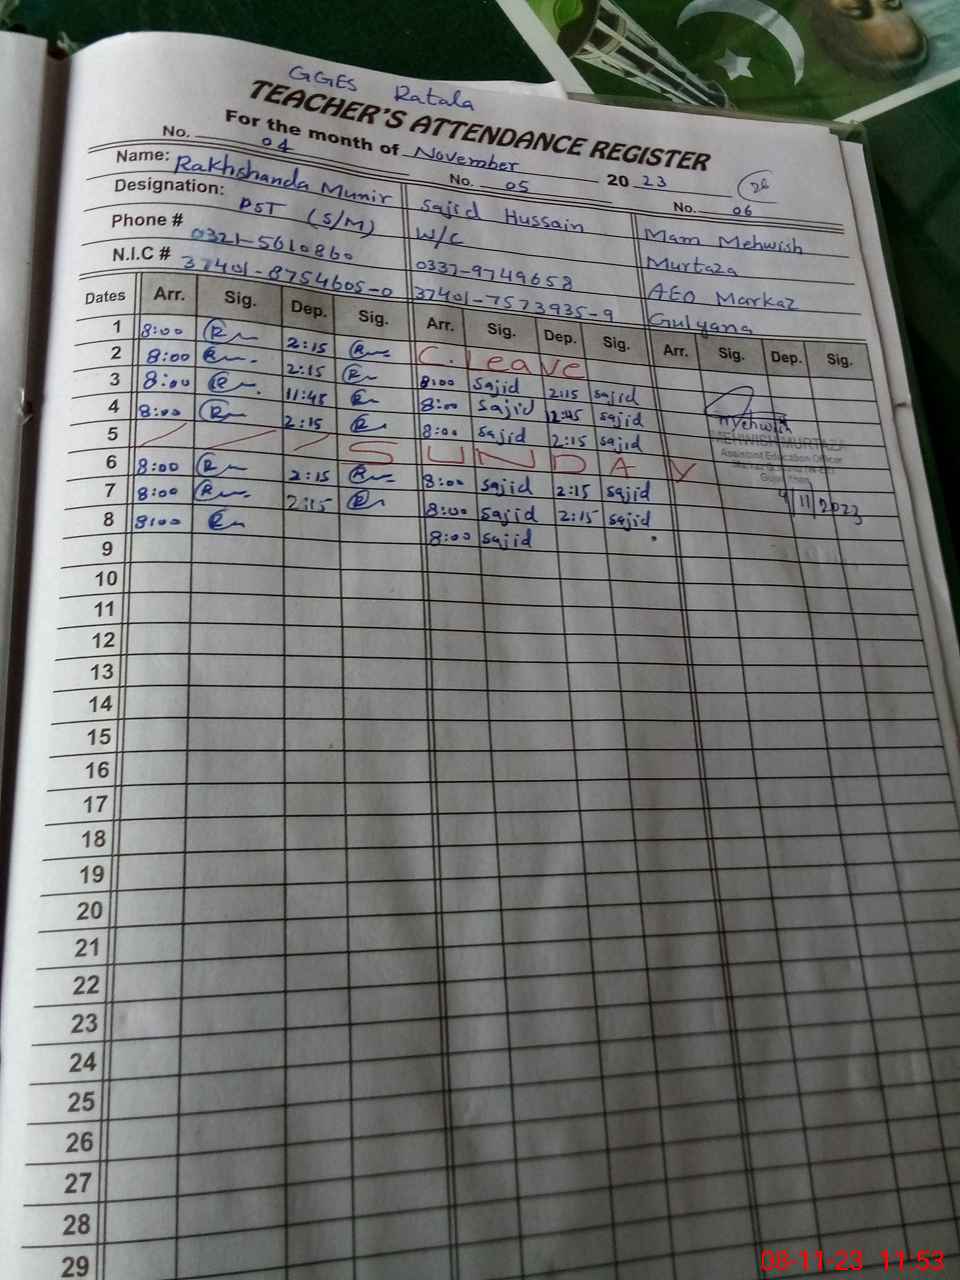 GGES Ratala
TEACHER'S ATTENDANCE REGISTER
For the month of November 2023
No. 04 No. 05 No. 06
Name: Rakhshanda Munir Sajid Hussain Mam Mehwish
Designation: PST (S/M) W/C Murtaza
Phone # 0321-5610860 0337-9749658 AEO Markaz
N.I.C # 37401-8754605-0 37401-7573935-9 Gulyana
Dates Arr. Sig. Dep. Sig. Arr. Sig. Dep. Sig. Arr. Sig. Dep. Sig.
1 8:00 R 2:15 R C. Leave
2 8:00 R 2:15 R 8:00 Sajid 2:15 Sajid
3 8:00 R 11:45 R 8:00 Sajid 12:45 Sajid Mehwish
4 8:00 R 2:15 R 8:00 Sajid 2:15 Sajid MEHWISH MURTAZA
Assistant Education Officer
5 SUNDAY
6 8:00 R 2:15 R 8:00 Sajid 2:15 Sajid 4/11/2023
7 8:00 R 2:15 R 8:00 Sajid 2:15 Sajid
8 8:00 R 8:00 Sajid
9
10
11
12
13
14
15
16
17
18
19
20
21
22
23
24
25
26
27
28
29
08-11-23 11:53